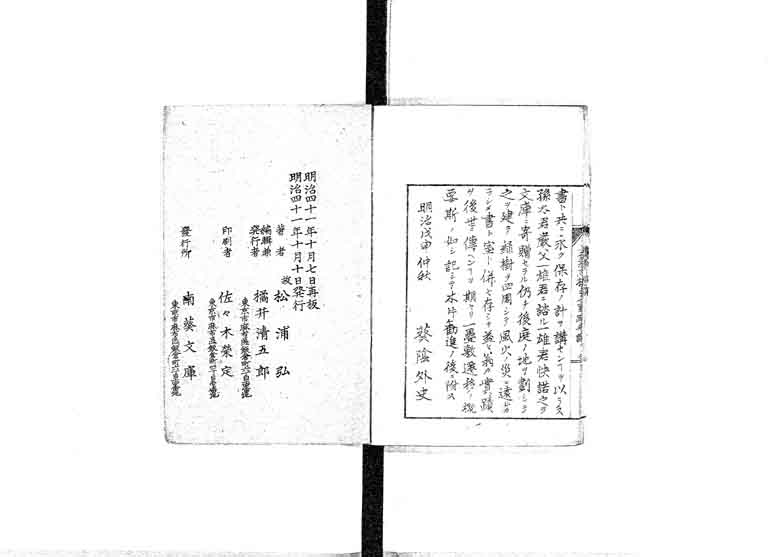 書ト共ニ永ク保存ノ計ヲ講センヿヲ以テス
孫太君嚴父一雄君ニ諮ル一雄君快諾之ヲ
文庫ニ寄贈セラル仍チ後庭ノ地ヲ劃シテ
之ヲ建テ緑樹ヲ四周シテ風火ノ災ニ遠ヒ
ラシメ書ト室ト併セ存シテ益々翁ノ實蹟
ヲ後世ニ傳ヘンヿヲ期セリ一疊敷遷移ノ
要斯ノ如シ記シテ木片勸進ノ後ニ附ス
明治戊申仲秋
葵陰外史
明治四十一年十月七日再板
明治四十一年十月十日発行
著者 故 松浦弘
編輯兼発行者 橘井清五郎
印刷者 佐々木榮定
發行所 南葵文庫
東京市麻布區飯倉町六丁目